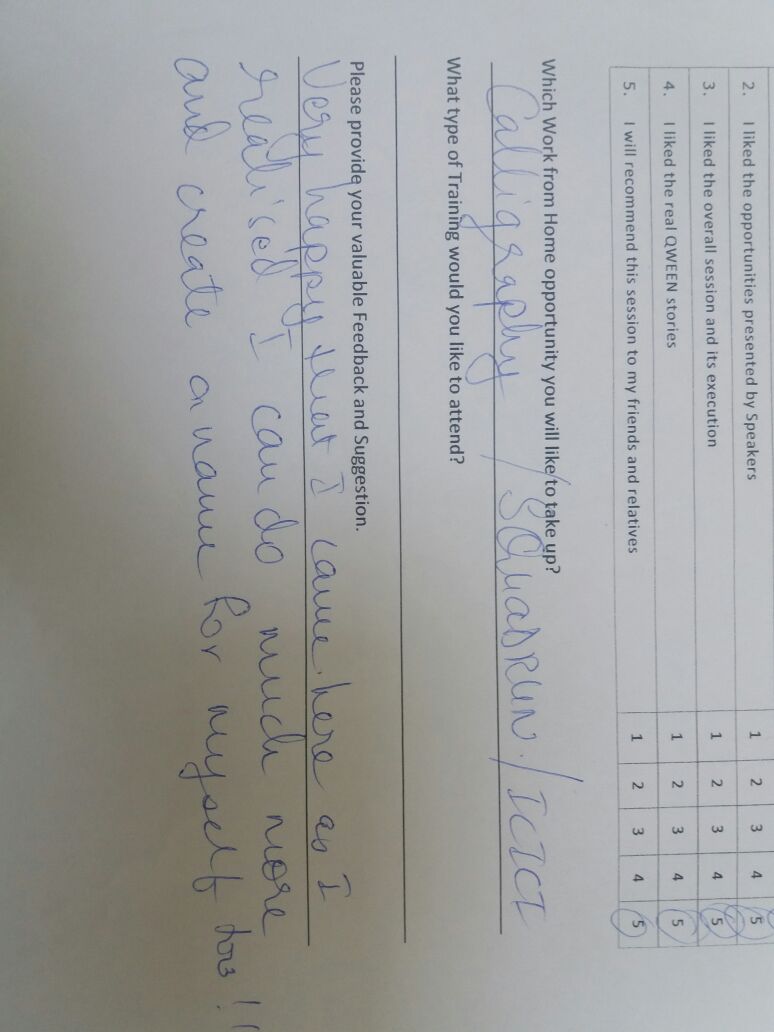 2. I liked the opportunities presented by Speakers 1 2 3 4 5
3. I liked the overall session and its execution 1 2 3 4 5
4. I liked the real QWEEN stories 1 2 3 4 5
5. I will recommend this session to my friends and relatives 1 2 3 4 5
Which Work from Home opportunity you will like to take up?
Calligraphy / SQUADRUN. / ICICI
What type of Training would you like to attend?
Please provide your valuable Feedback and Suggestion.
Very happy that I came here as I
realised I can do much more
and create a name for myself too !!